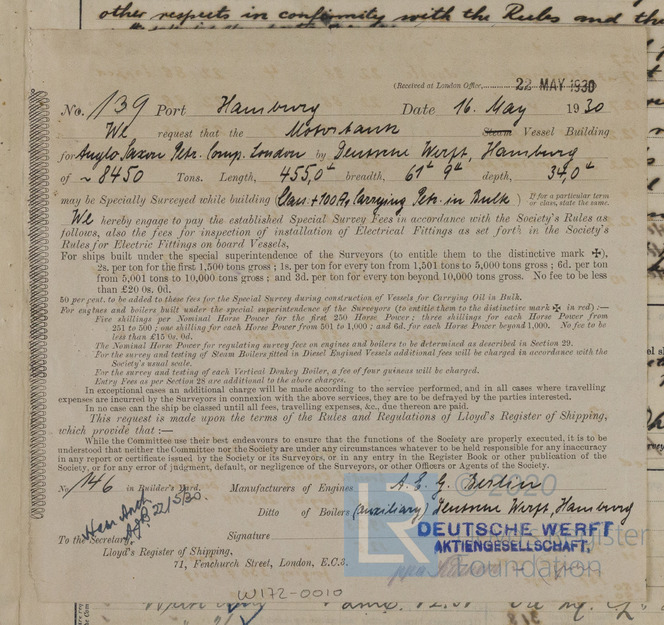 other respects in conformity with the Rules and the
(Received at London Office, 22 MAY 1930
No. 139 Port Hamburg Date 16. May 1930
We request that the Motortank Steam Vessel Building
for Anglo Saxon Petr. Comp. London by Deutsche Werft, Hamburg
of ~ 8450 Tons. Length, 455,0" breadth, 61" 9" depth, 34,0"
may be Specially Surveyed while building (Class. +100 A, Carrying Petr. in Bulk) If for a particular term or class, state the same.
We hereby engage to pay the established Special Survey Fees in accordance with the Society's Rules as
follows, also the fees for inspection of installation of Electrical Fittings as set forth in the Society's
Rules for Electric Fittings on board Vessels,
For ships built under the special superintendence of the Surveyors (to entitle them to the distinctive mark ✠),
2s. per ton for the first 1,500 tons gross ; 1s. per ton for every ton from 1,501 tons to 5,000 tons gross ; 6d. per ton
from 5,001 tons to 10,000 tons gross ; and 3d. per ton for every ton beyond 10,000 tons gross. No fee to be less
than £20 0s. 0d.
50 per cent. to be added to these fees for the Special Survey during construction of Vessels for Carrying Oil in Bulk.
For engines and boilers built under the special superintendence of the Surveyors (to entitle them to the distinctive mark ✠ in red) :—
Five shillings per Nominal Horse Power for the first 250 Horse Power ; three shillings for each Horse Power from
251 to 500 ; one shilling for each Horse Power from 501 to 1,000 ; and 6d. for each Horse Power beyond 1,000. No fee to be
less than £15 0s. 0d.
The Nominal Horse Power for regulating survey fees on engines and boilers to be determined as described in Section 29.
For the survey and testing of Steam Boilers fitted in Diesel Engined Vessels additional fees will be charged in accordance with the
Society's usual scale.
For the survey and testing of each Vertical Donkey Boiler, a fee of four guineas will be charged.
Entry Fees as per Section 28 are additional to the above charges.
In exceptional cases an additional charge will be made according to the service performed, and in all cases where travelling
expenses are incurred by the Surveyors in connexion with the above services, they are to be defrayed by the parties interested.
In no case can the ship be classed until all fees, travelling expenses, &c., due thereon are paid.
This request is made upon the terms of the Rules and Regulations of Lloyd's Register of Shipping,
which provide that :—
While the Committee use their best endeavours to ensure that the functions of the Society are properly executed, it is to be
understood that neither the Committee nor the Society are under any circumstances whatever to be held responsible for any inaccuracy
in any report or certificate issued by the Society or its Surveyors, or in any entry in the Register Book or other publication of the
Society, or for any error of judgment, default, or negligence of the Surveyors, or other Officers or Agents of the Society.
No 146 in Builder's Yard. Manufacturers of Engines A. E. G. Berlin
Ditto of Boilers (auxiliary) Deutsche Werft, Hamburg
22/5/30.
Signature
DEUTSCHE WERFT
AKTIENGESELLSCHAFT,
To the Secretary,
Lloyd's Register of Shipping,
71, Fenchurch Street, London, E.C.3.
ppa
LR
© 2020
Lloyd's Register
Foundation
W172-0010